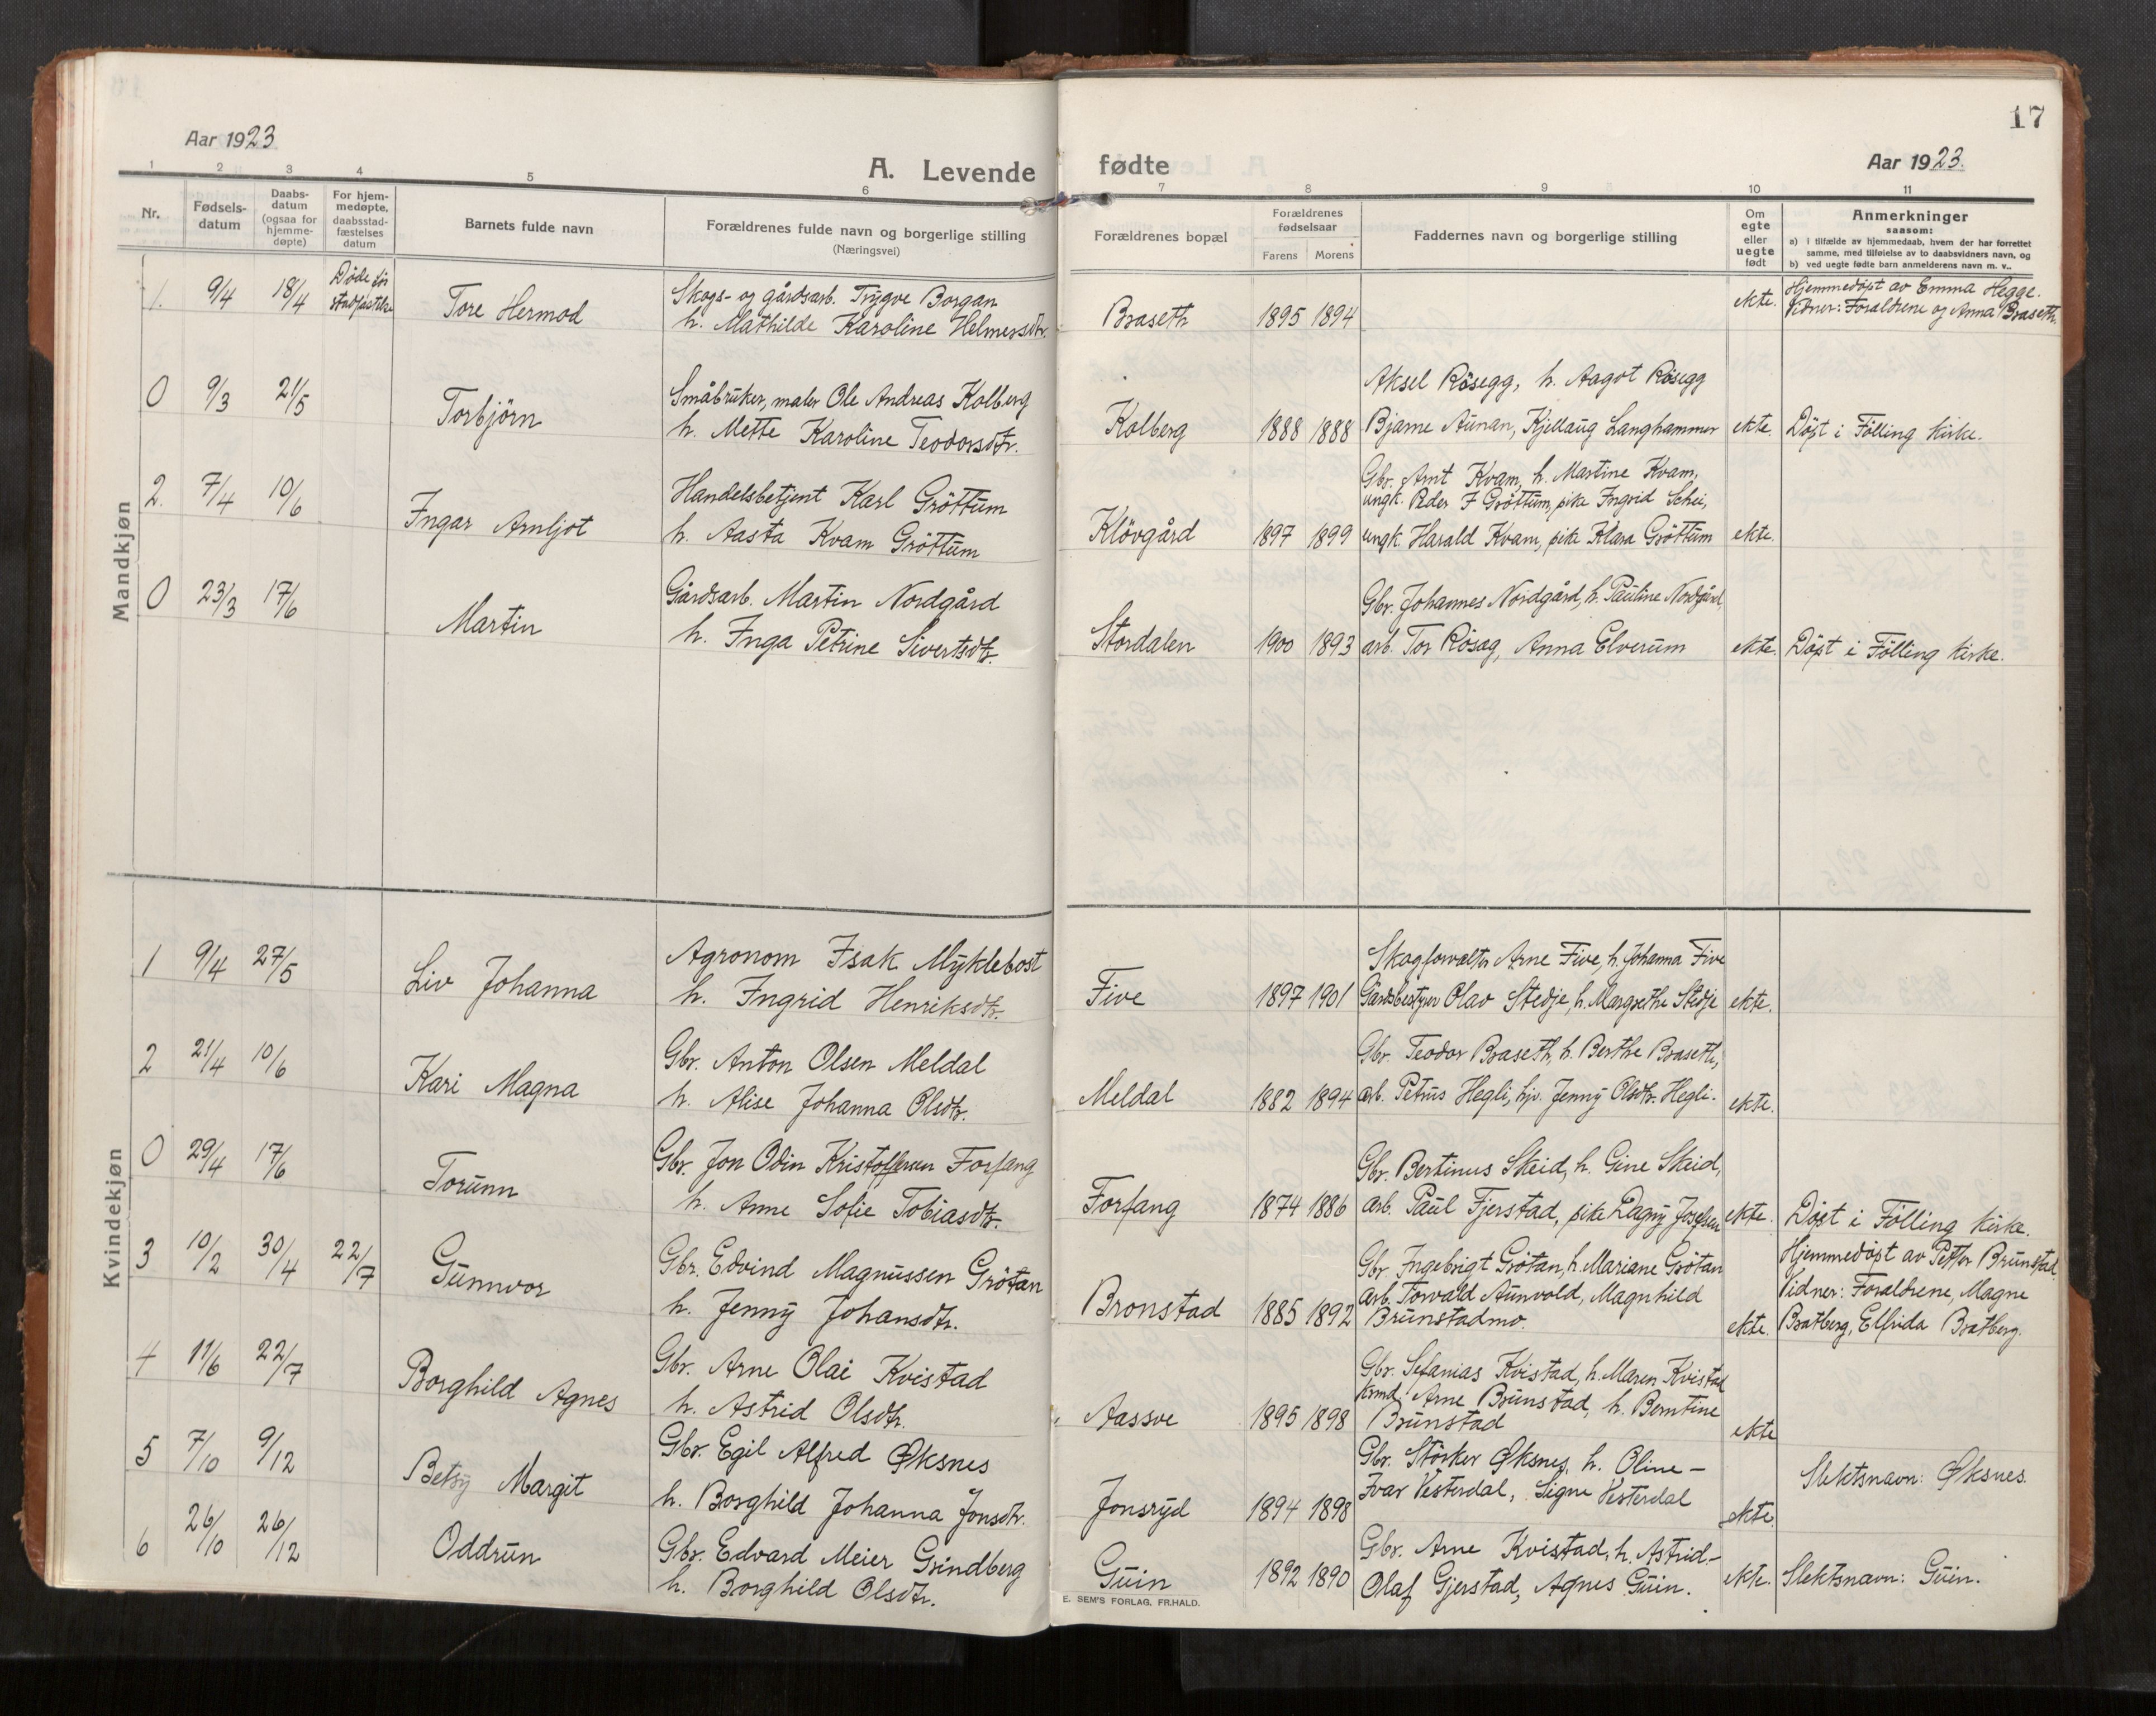 17
Aar 1923
A. Levende fødte
Aar 1923.
1 2 3 4 5 6 7 8 9 10 11
Nr.
Fødsels-
datum
Daabs-
datum
(ogsaa for
hjemme-
døpte)
For hjem-
medøpte,
daabsstad-
fæstelses
datum
Barnets fulde navn
Forældrenes fulde navn og borgerlige stilling
(Næringsvei)
Forældrenes bopæl
Forældrenes
fødselsaar
Farens Morens
Faddernes navn og borgerlige stilling
Om
egte
eller
uegte
født
Anmerkninger
saasom:
a) i tilfælde av hjemmedaab, hvem der har forrettet
samme, med tilføielse av to daabsvidners navn, og
b) ved uegte fødte barn anmelderens navn m. v..
Mandkjøn
1. 9/4 18/4 Døde før
stadfæstelse
Tore Hermod
Skogs- og gårdsarb. Trygve Borgan
h. Mathilde Karoline Helmersdtr.
Braseth 1895 1894
ekte.
Hjemmedøpt av Emma Hegge.
Vidner: Foraldrene og Anna Braseth.
0 9/3 21/5
Torbjörn
Småbruker, maler Ole Andreas Kolberg
h. Mette Karoline Teodorsdtr.
Kolberg 1888 1888
Aksel Rösegg, h. Aagot Rösegg
Bjarne Aunan, Kjellaug Langhammer
ekte. Döpt i Fölling kirke.
2. 7/4 10/6
Ingar Arnljot
Handelsbetjent Karl Gröttum
h. Aasta Kvam Gröttum
Klövgård 1897 1899
Gbr. Arnt Kvam, h. Martine Kvam,
ungk. Peder F Gröttum, pike Ingrid Schei,
ungk. Harald Kvam, pike Klara Gröttum
ekte.
0 23/3 17/6
Martin
Gårdsarb. Martin Nordgård
h. Inga Petrine Sivertsdtr.
Stordalen 1900 1893
Gbr. Johannes Nordgård, h. Pauline Nordgård,
arb. Tor Rösag, Anna Elverum
ekte. Döpt i Fölling kirke.
Kvindekjøn
1 9/4 27/5
Liv Johanna
Agronom Isak Myklebost
h. Ingrid Henriksdtr.
Five 1897 1901
Skogforvalter Arne Five, h. Johanna Five
Gårdsbestyrer Olav Stedje, h. Margrethe Stedje
ekte.
2 21/4 10/6
Kari Magna
Gbr. Anton Olsen Meldal
h. Alise Johanna Olsdtr.
Meldal 1882 1894
Gbr. Teodor Braseth, h. Berthe Braseth,
arb. Petrus Hegli, hjv. Jenny Olsdtr. Hegli.
ekte.
0 29/4 17/6
Torunn
Gbr. Jon Odin Kristoffersen Forfang
h. Anne Sofie Tobiasdtr.
Forfang 1874 1886
Gbr. Bertinus Skeid, h. Gine Skeid,
arb. Paul Fjerstad, pike Dagny Josefsen
ekte. Döpt i Fölling kirke.
3 10/2 30/4 22/7
Gunnvor
Gbr. Edvind Magnussen Grötan
h. Jenny Johansdtr.
Bronstad 1885 1892
Gbr. Ingebrigt Grötan, h. Mariane Grötan
arb. Torvald Aunvold, Magnhild
Brunstadmo.
ekte.
Hjemmedöpt av Petter Brunstad.
Vidner: Foraldrene, Magne
Bratberg, Elfrida Bratberg.
4 11/6 22/7
Borghild Agnes
Gbr. Arne Olai Kvistad
h. Astrid Olsdtr.
Aassve 1895 1898
Gbr. Sefanias Kvistad, h. Maren Kvistad
kmd. Arne Brunstad, h. Berntine
Brunstad
ekte
5 7/10 9/12
Betsy Margit
Gbr. Egil Alfred Øksnes
h. Borghild Johanna Jonsdtr.
Jonsryd 1894 1898
Gbr. Störker Øksnes, h. Oline –
Ivar Vesterdal, Signe Vesterdal
ekte.
Slektsnavn: Øksnes.
6 26/10 26/12
Oddrun
Gbr. Edvard Meier Grindberg
h. Borghild Olsdtr.
Guin 1892 1890
Gbr. Arne Kvistad, h. Astrid –
Olaf Gjerstad, Agnes Guin.
ekte. Slektsnavn: Guin.
E. SEM'S FORLAG, FR.HALD.